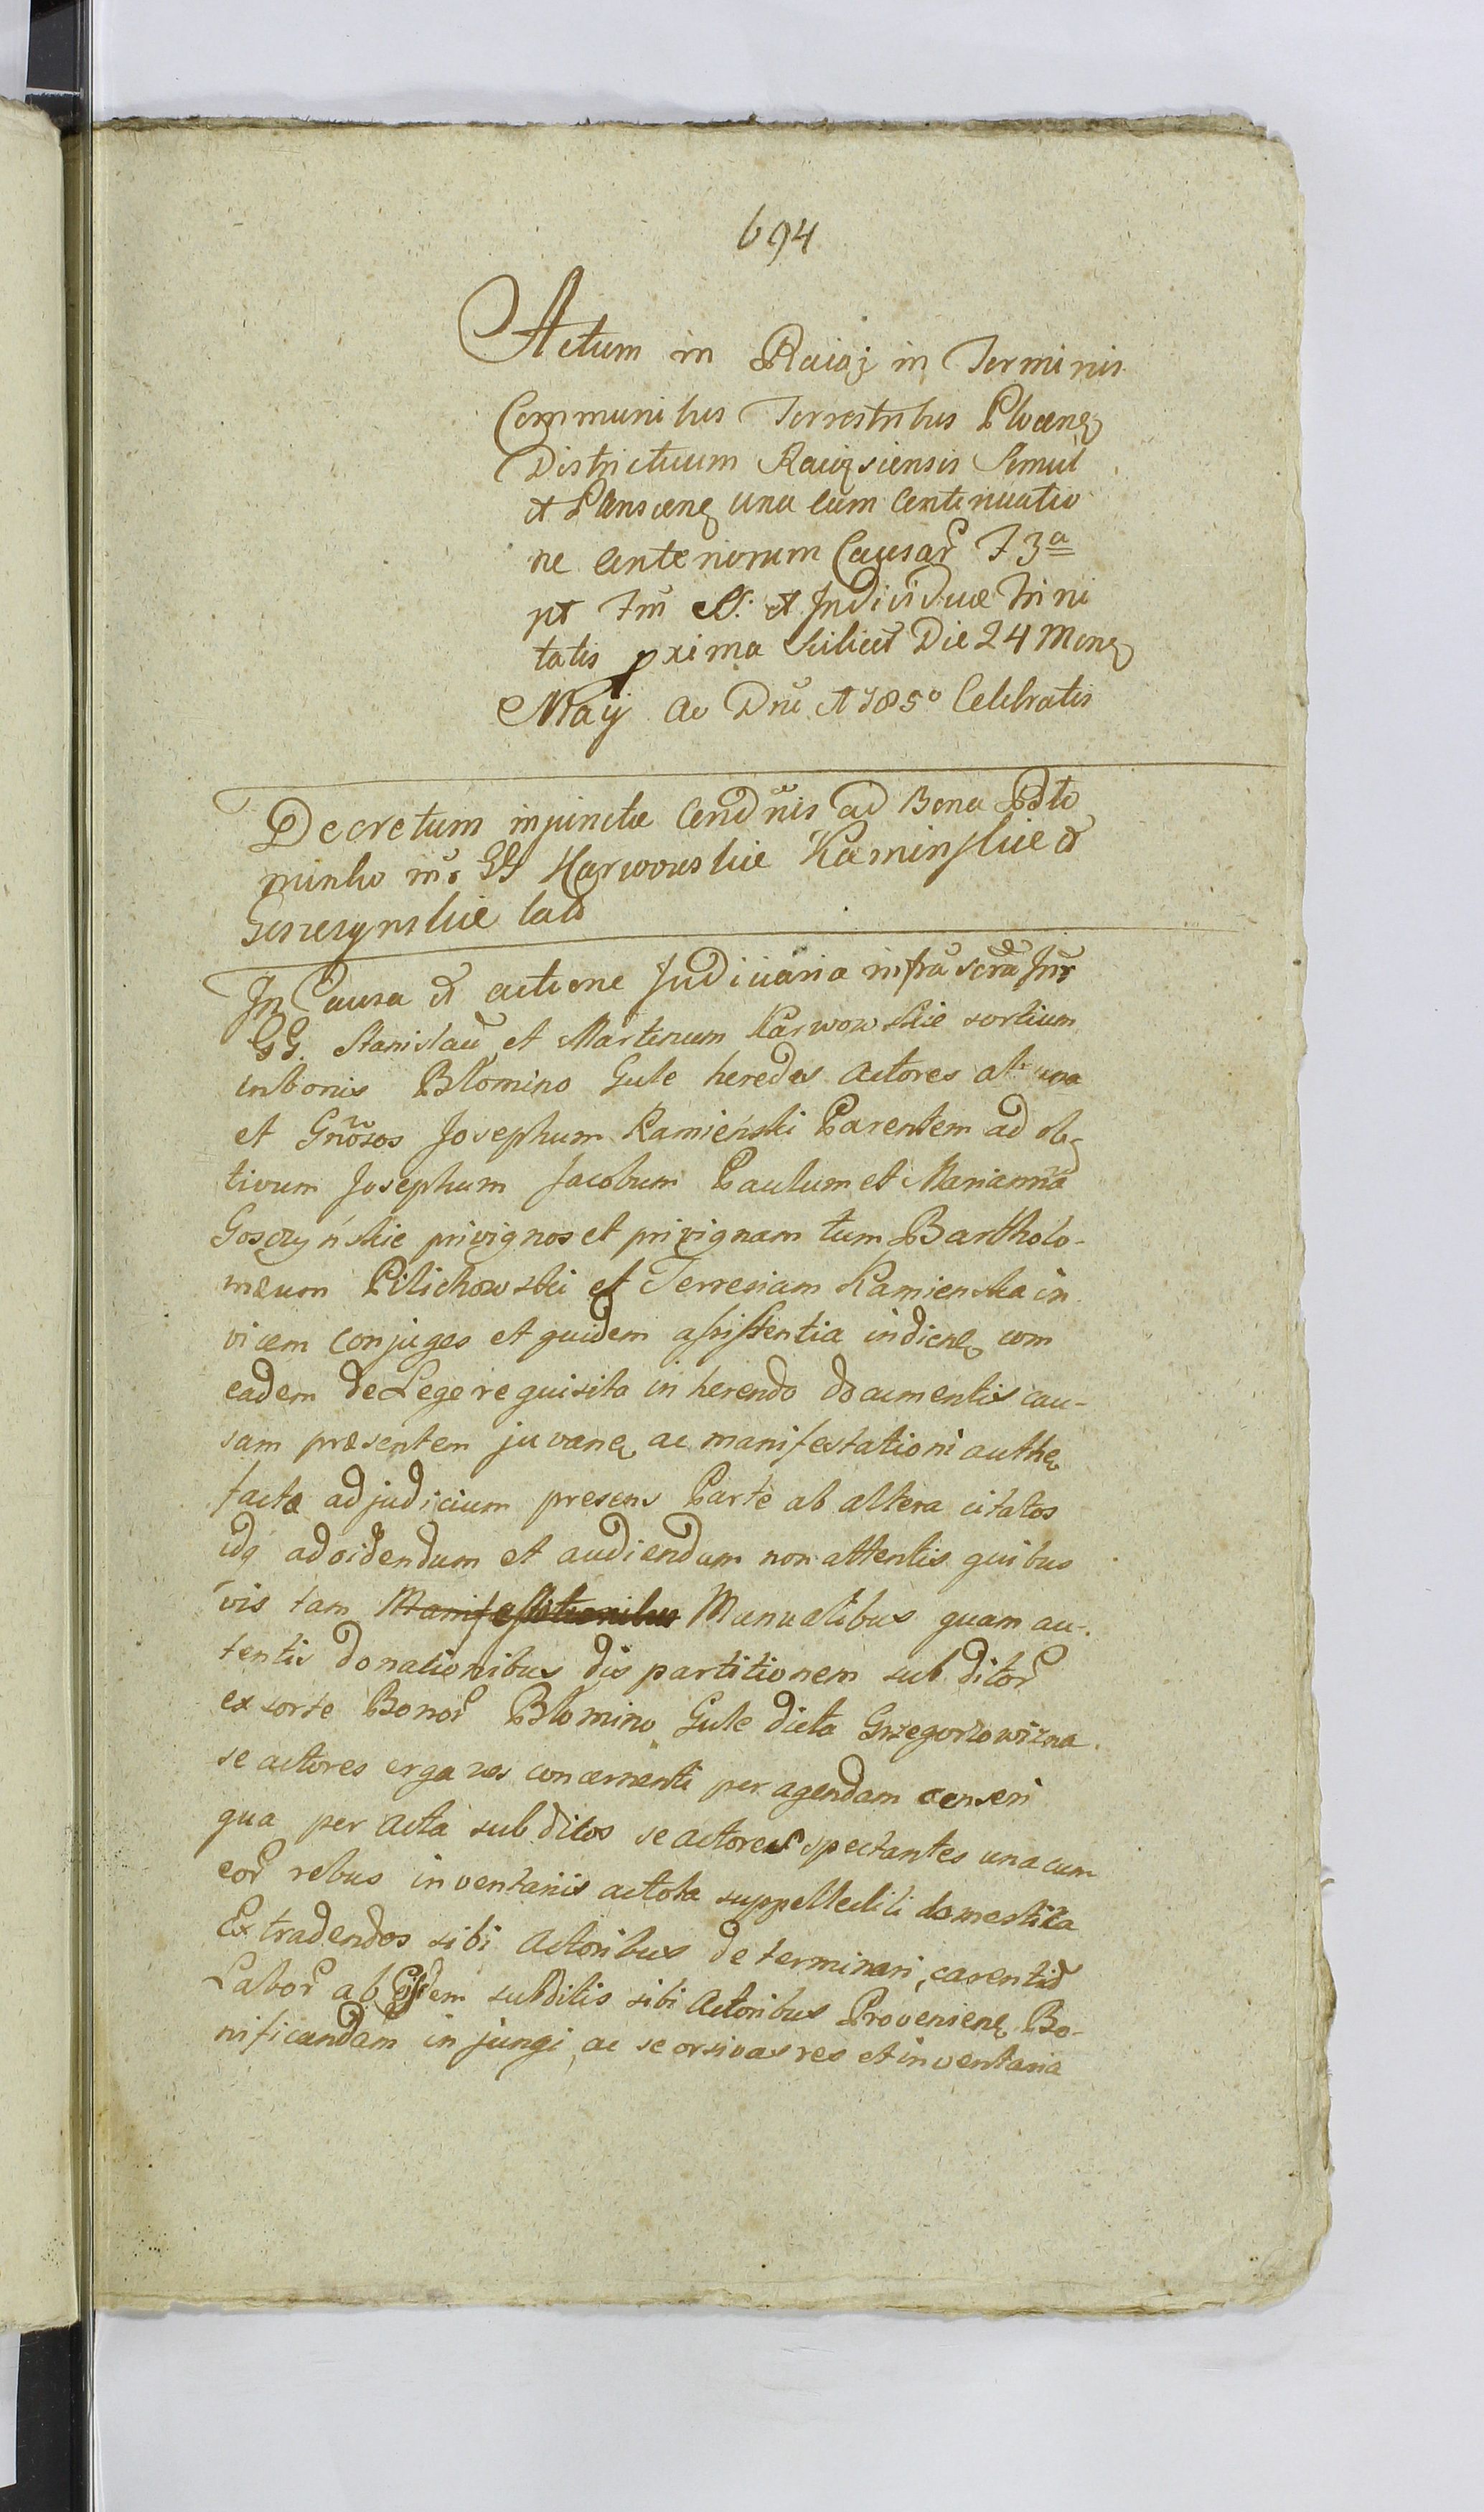 694
Actum in Raiąz in Terminis
Communibus Terrestribus Plocens
Districtuum Raiązsiensis Simul
et Plonscens una cum Continuatio
ne Anteriorum Causar̃ F 3ª
pt F̃m SS: et Individuæ Trini
tatis prima Scilicet Die 24 Mens
Maÿ Ao Dñi 1785º Celebratis
Decretum injunctæ Condñis ad Bona Bło
minko m̃r GG Karwowskie Kaminskie et
Goszczynskie lat̃
In Causa et actione Judiciaria infra scr̃a In̄r
GG. Stanislaũ et Martinum Karwowskie sortium
in bonis Błomino Gule heredes Actores ab una
et Gñosos Josephum Kamieński Parentem ad ole
tivum Josephum Jacobum Paulum et Mariannã
Gosczyńskie privignos et privignam tum Bartholo-
mæum Pilichowski et Terresiam Kamienska in
vicem conjuges et quidem assistentia indiens cum
eadem de Lege requisita in herendo documentis cau-
sam præsentem juvans ac manifestationi authe
factæ ad judicium presens Parte ab altera citatos
idq advidendum et audiendum non attentis quibus
vis tam Manifestationibus Manualibus quam au-
tentis donationibus dis partitionem sub ditor̃
ex sorte Bonor̃ Błomino Gule dicta Grzegorzowizna
se actores erga res concernenti per agendam censeri
qua per acta sub ditos se actores spectantes una cum
eor̃ rebus inventariis ac tota suppellectili domestica
Ex tradendos sibi Actoribus determinari, carentiã
Labor̃ ab Eisdem subditis sibi Actoribus Proveniens Bo-
nificandam in jungi, ac se orsivas res et inventaria